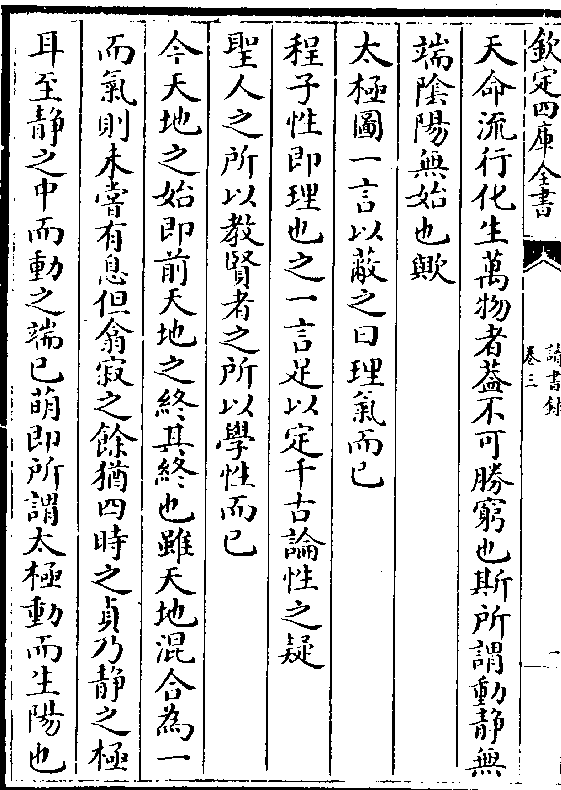 欽定四庫全書
讀書錄
卷三
一
天命流行化生萬物者葢不可勝窮也斯所謂動静無
端隂陽無始也歟
太極圖一言以蔽之曰理氣而已
程子性即理也之一言足以定千古論性之疑
聖人之所以教賢者之所以學性而已
今天地之始即前天地之終其終也雖天地混合為一
而氣則未嘗有息但翕寂之餘猶四時之貞乃静之極
耳至静之中而動之端已萌即所謂太極動而生陽也